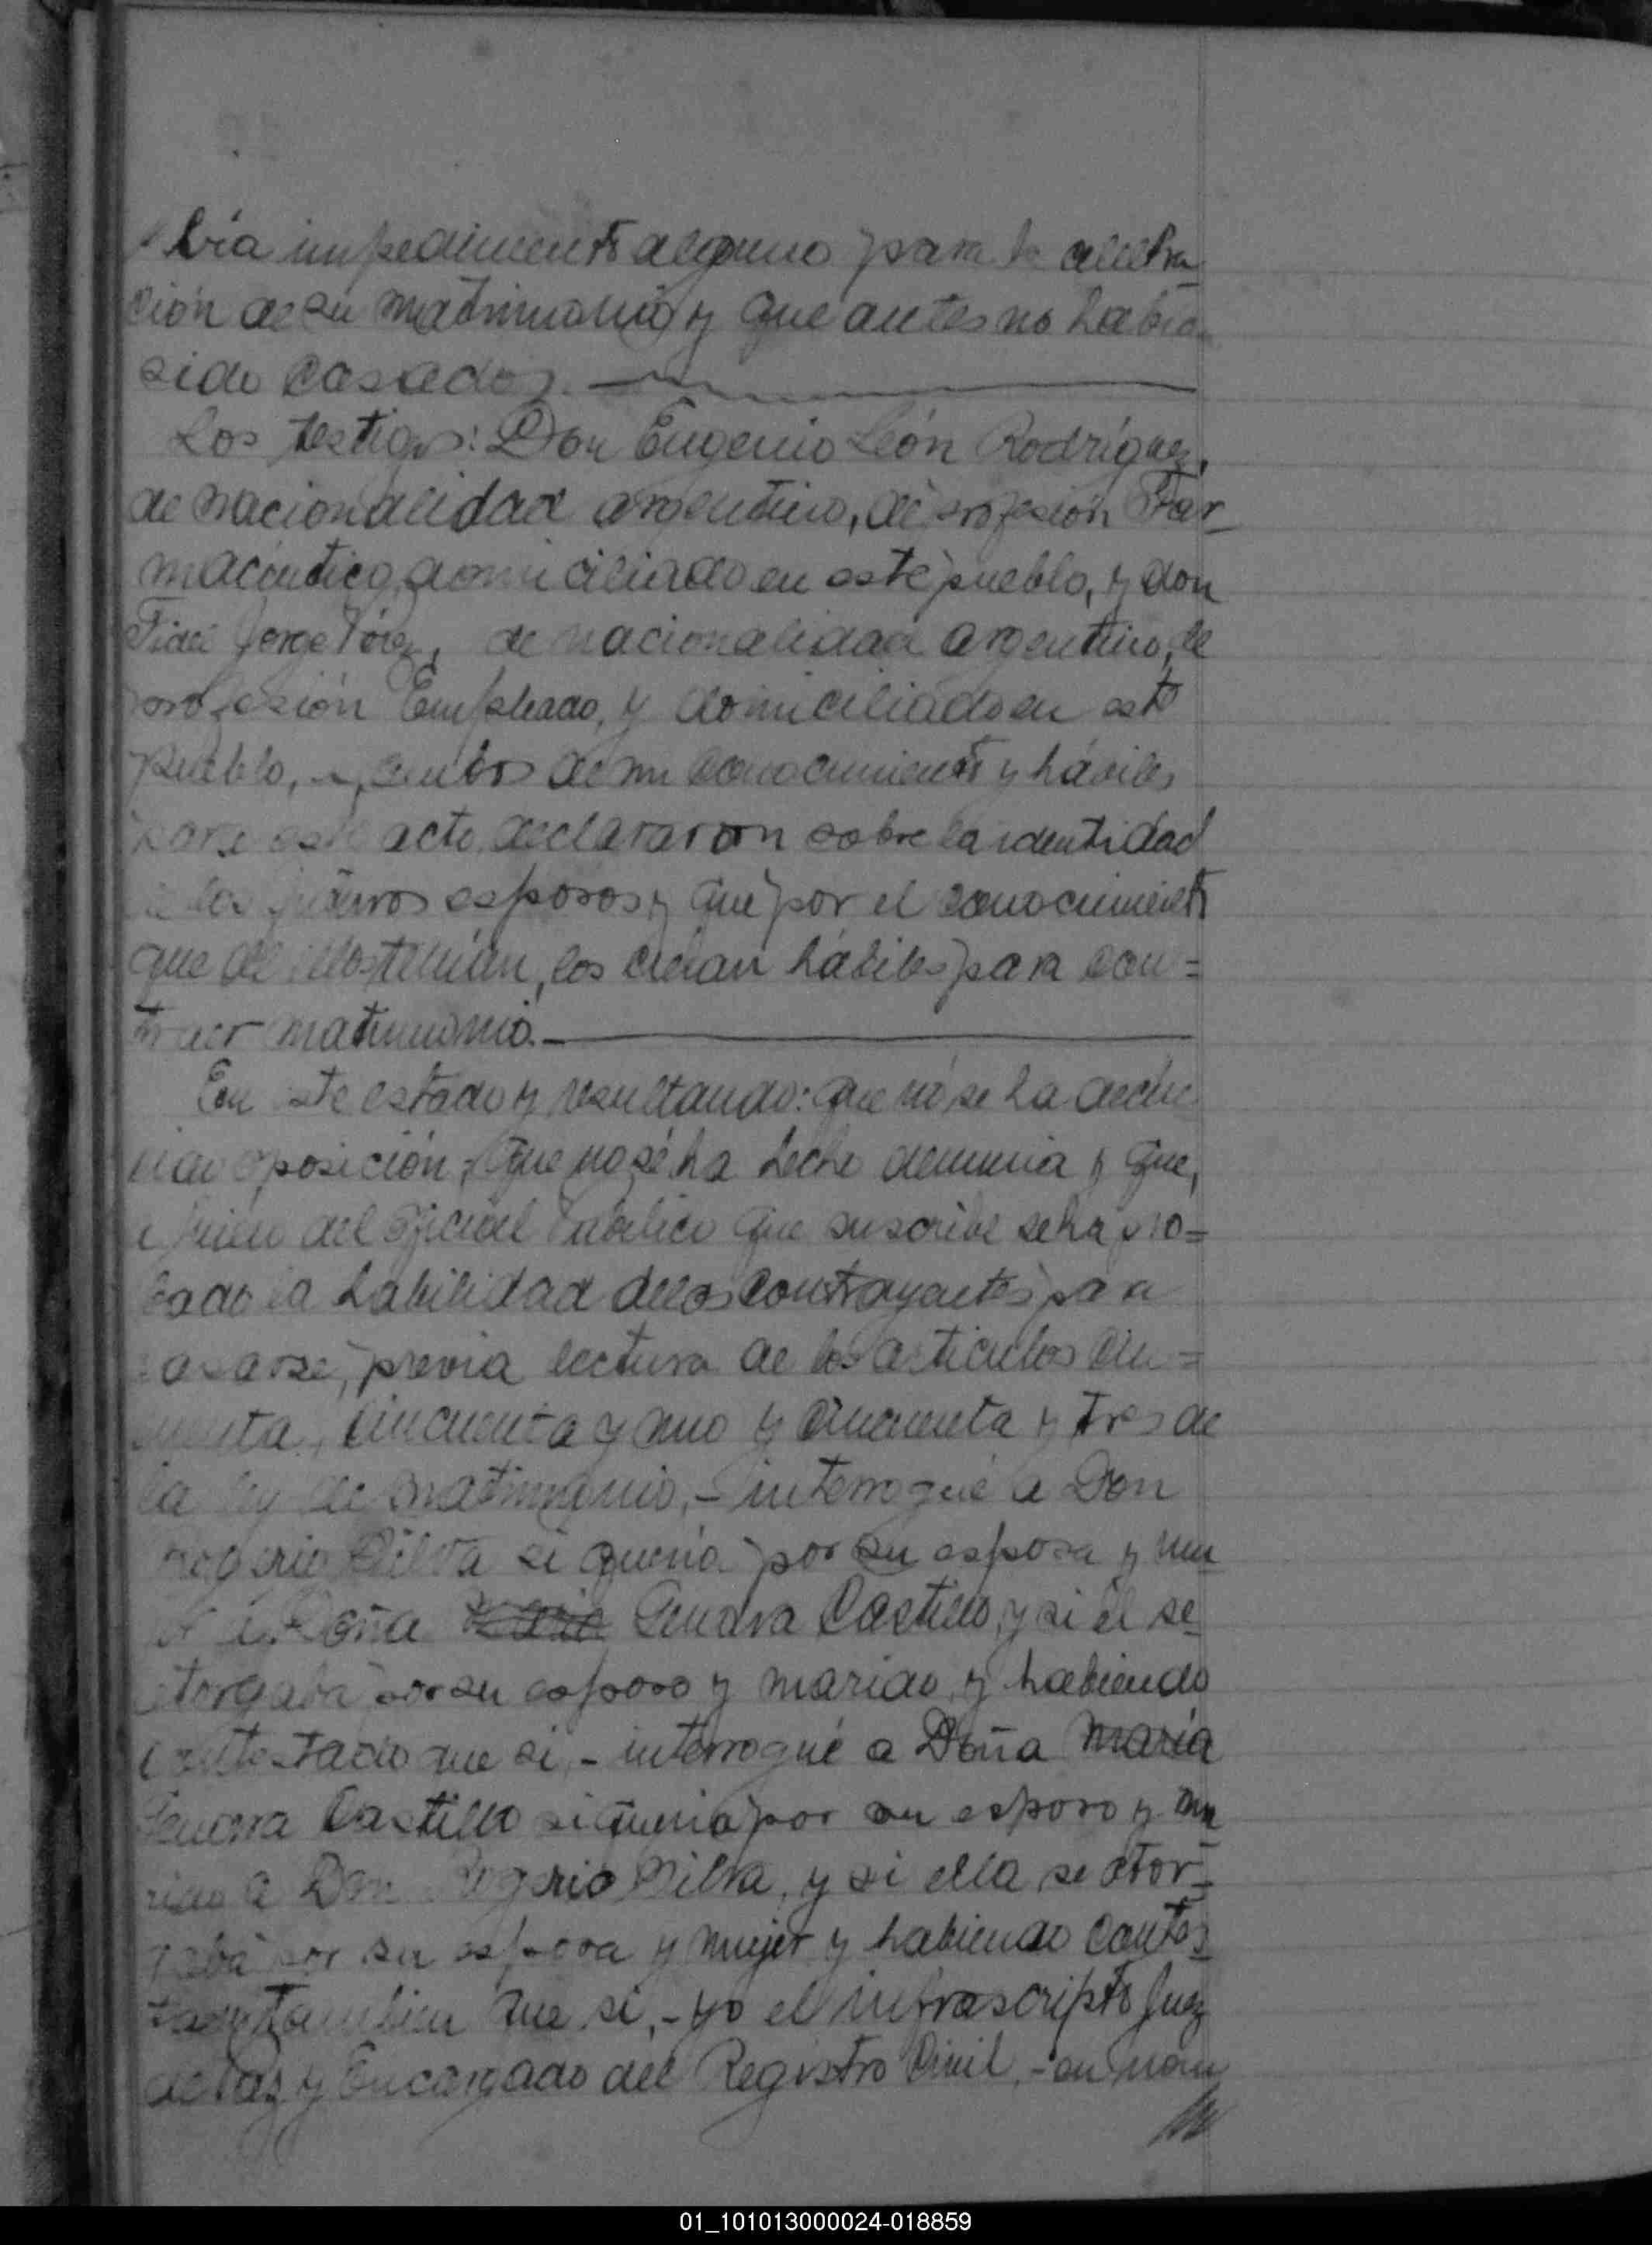 bía impedimento alguno para la celebra
ción de su matrimonio y que antes no habían
sido casados.
Los testigos: Don Eugenio León Rodríguez,
de nacionalidad argentino, de profesión Far
macéutico, domiciliado en este pueblo, y don
Fidel Jorge, de nacionalidad argentino, de
profesión Empleado, y domiciliado en este
pueblo, ambos de mi conocimiento y hábiles
para este acto, declararon sobre la identidad
de los futuros esposos y que por el conocimiento
que de ellos tenían, los creían hábiles para con=
traer matrimonio.
En este estado y resultando: que no se ha dedu
cido oposición, que no se ha hecho denuncia y que,
a juicio del Oficial Público que suscribe se ha pro=
bado la habilidad de los contrayentes para
casarse, previa lectura de los artículos cin=
cuenta, cincuenta y uno y cincuenta y tres de
la ley de matrimonio,- interrogué a Don
Rogerio Silva si quería por su esposa y mu
jer a Doña Genara Castillo, y si él se
otorgaba por su esposo y marido, y habiendo
contestado que si,- interrogué a Doña María
Genara Castillo si quería por su esposo y ma
rido a Don Rogerio Silva, y si ella se otor-
gaba por su esposa y mujer y habiendo contes
tado también que si,- yo el infrascripto Juez
de Paz y Encargado del Registro Civil,- en nom
01_101013000024-018859